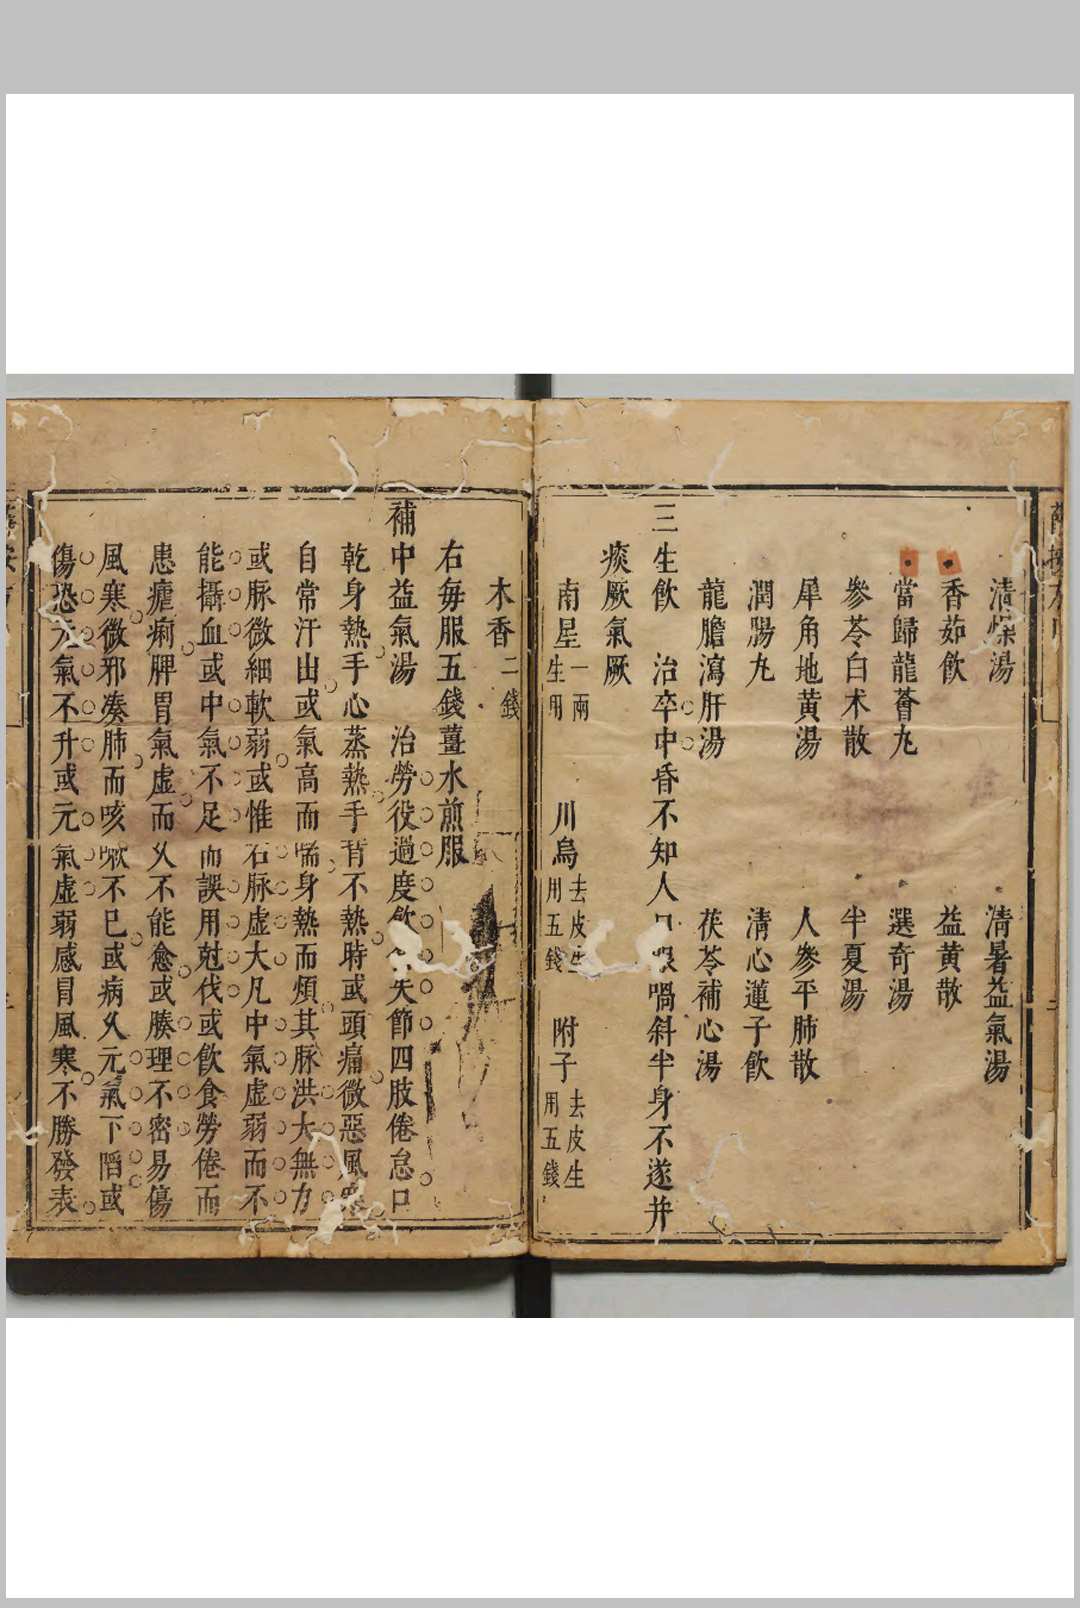 清燥湯 清暑益氣湯
香茹飲 益黃散
當歸龍薈丸 選奇湯
參苓白术散 半夏湯
犀角地黃湯 人參平肺散
潤腸丸 清心蓮子飲
龍膽瀉肝湯 茯苓補心湯
三生飲 治卒中昏不知人口眼喎斜半身不遂并
痰厥氣厥
南星一兩生用 川烏去皮生用五錢 附子去皮生用五錢
木香二錢
右每服五錢薑水煎服
補中益氣湯 治勞役過度飲食失節四肢倦怠口
乾身熱手心蒸熱手背不熱時或頭痛微惡風寒
自常汗出或氣高而喘身熱而煩其脉洪大無力
或脉微細軟弱或惟右脉虛大凡中氣虛弱而不
能攝血或中氣不足而誤用尅伐或飲食勞倦而
患瘧痢脾胃氣虛而久不能愈或腠理不密易傷
風寒微邪湊肺而咳嗽不已或病久元氣下陷或
傷恐元氣不升或元氣虛弱感冒風寒不勝發表